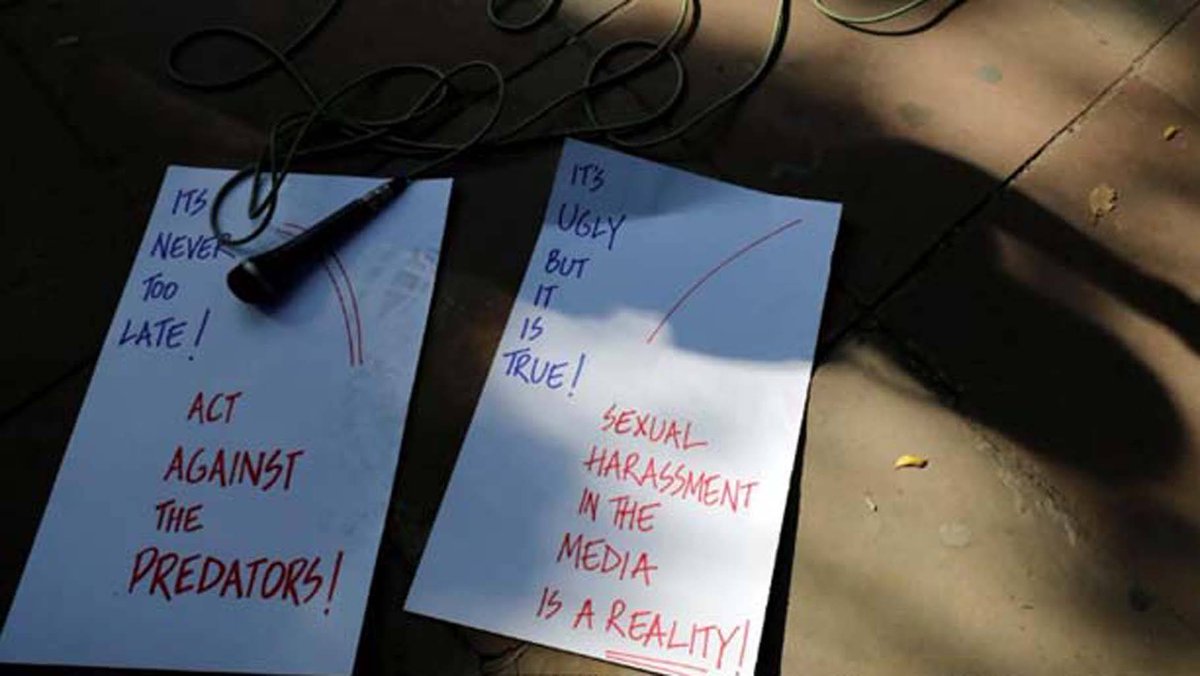 ITS
NEVER
TOO
LATE!
ACT
AGAINST
THE
PREDATORS!
IT'S
UGLY
BUT
IT
IS
TRUE!
SEXUAL
HARASSMENT
IN THE
MEDIA
IS A REALITY!